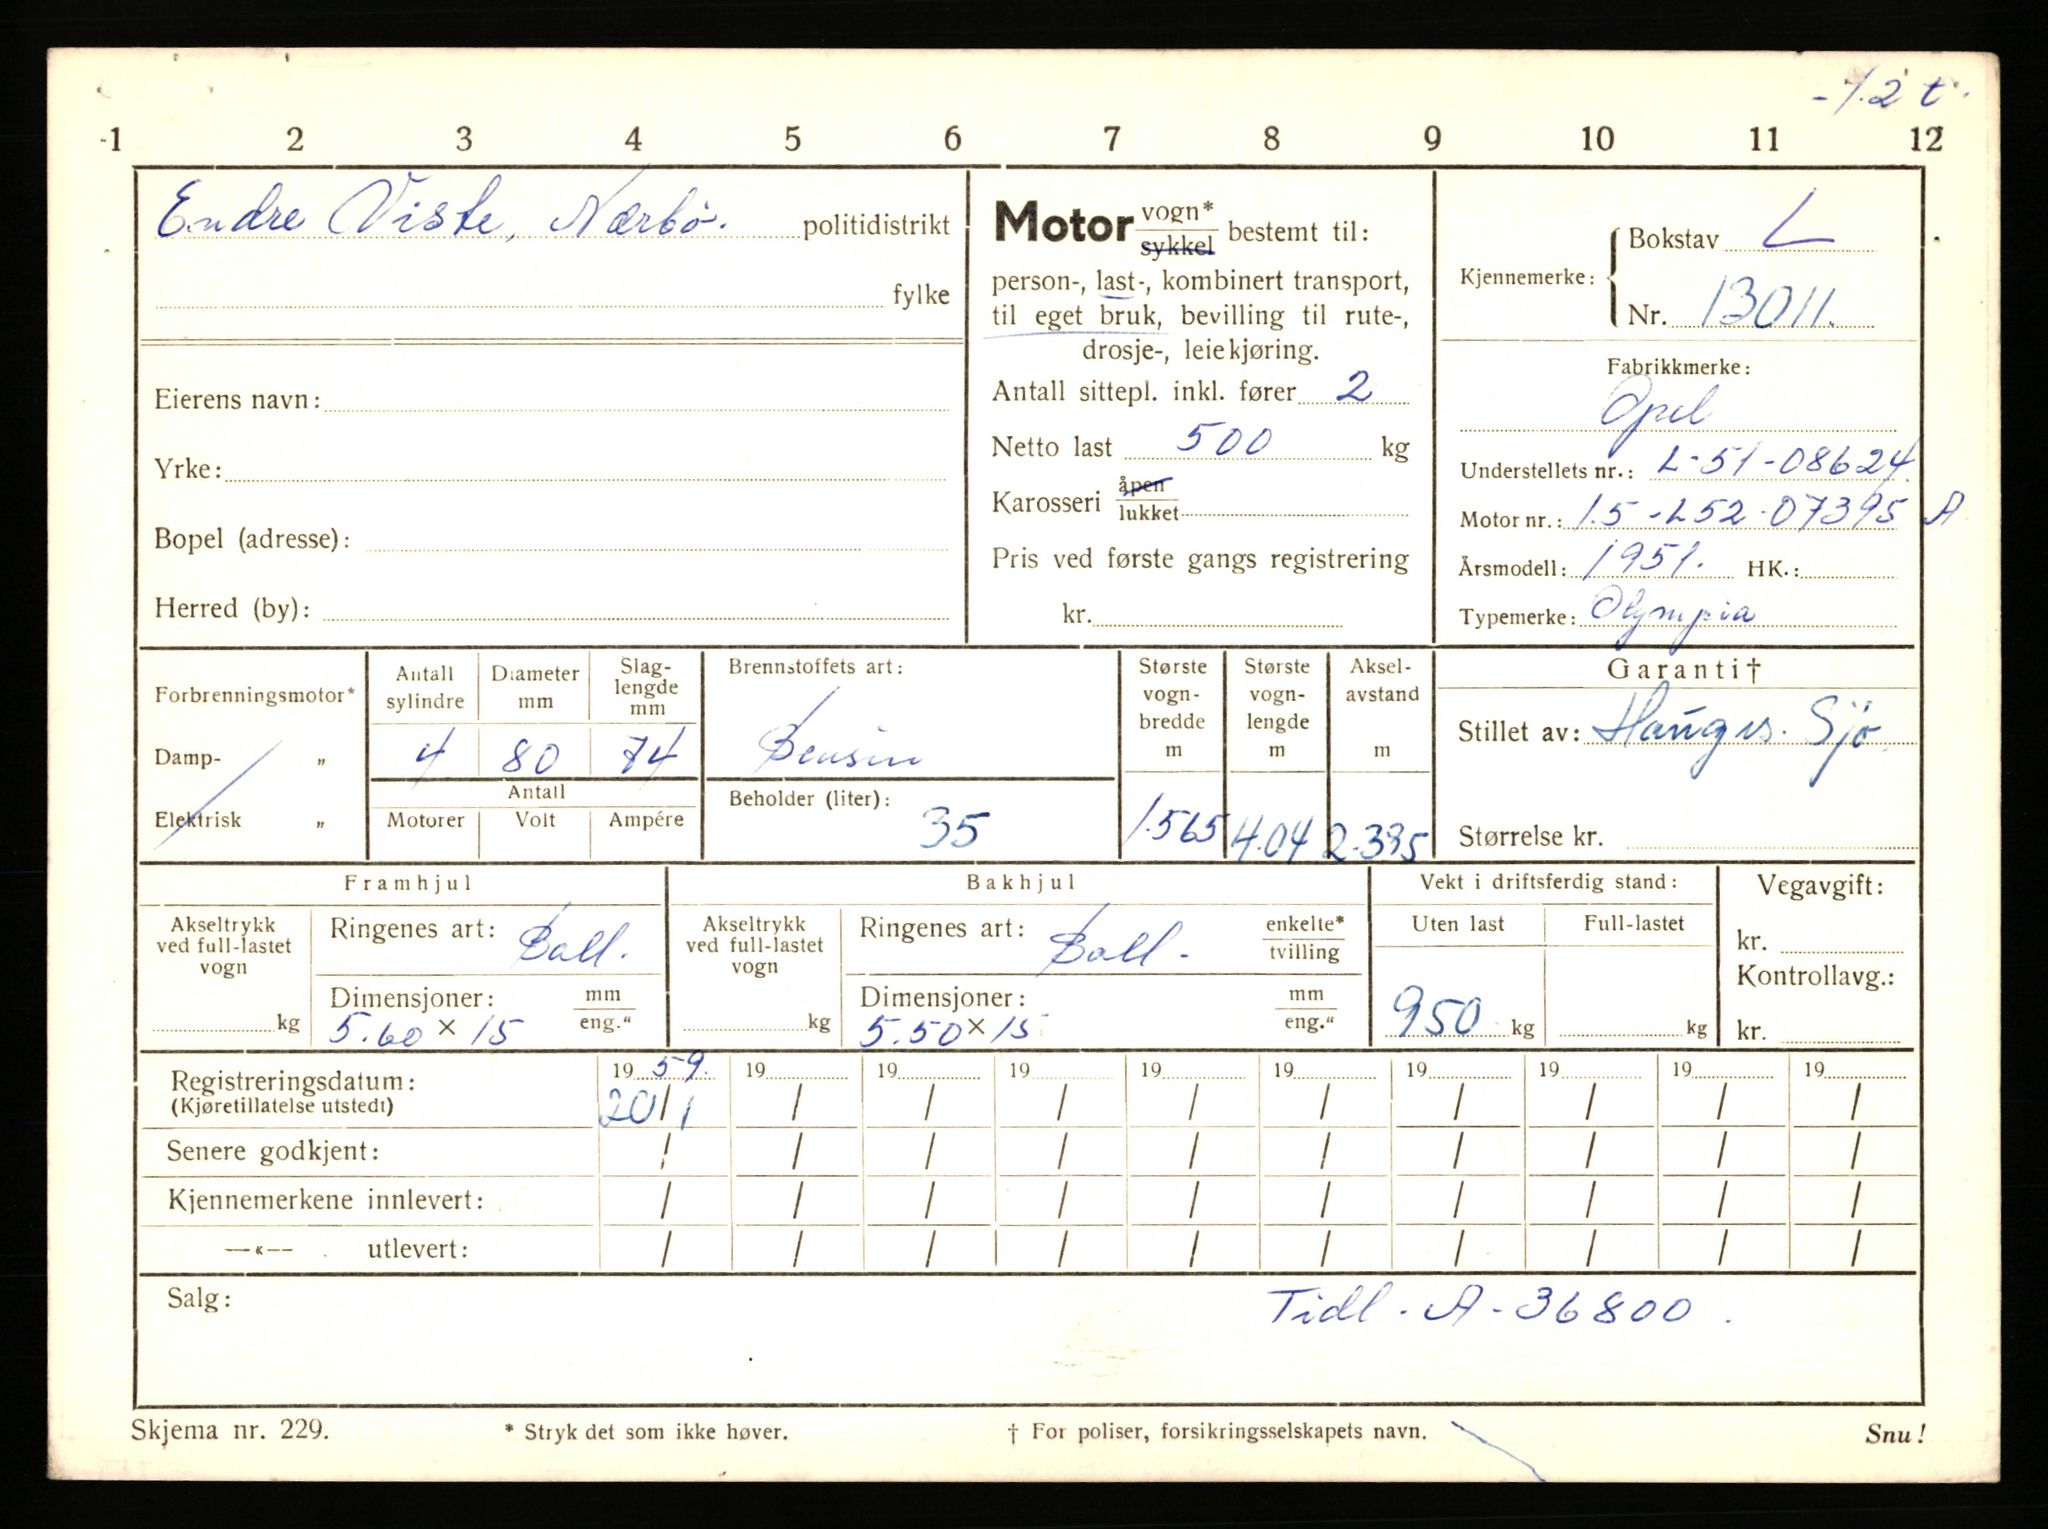 -1.2 t.
1 2 3 4 5 6 7 8 9 10 11 12
Endre Viste, Nærbø. politidistrikt
fylke
Eierens navn:
Yrke:
Bopel (adresse):
Herred (by):
Motor vogn* / sykkel bestemt til:
person-, last-, kombinert transport,
til eget bruk, bevilling til rute-,
drosje-, leiekjøring.
Antall sittepl. inkl. fører 2
Netto last 500 kg
Karosseri åpen / lukket
Pris ved første gangs registrering
kr.
Kjennemerke: Bokstav L
Nr. 13011.
Fabrikkmerke:
Opel
Understellets nr.: L-51-08624
Motor nr.: 1.5-L52-07395 A
Årsmodell: 1951. HK.:
Typemerke: Olympia
Forbrenningsmotor*
Damp- „
Elektrisk „
Antall sylindre
Diameter mm
Slag-lengde mm
4 80 74
Antall
Motorer Volt Ampére
Brennstoffets art:
Bensin
Beholder (liter):
35
Største vogn-bredde m
1.565
Største vogn-lengde m
4.04
Aksel-avstand m
2.335
Garanti†
Stillet av: Hauges. Sjø
Størrelse kr.
Framhjul
Akseltrykk ved full-lastet vogn
kg
Ringenes art: Ball.
Dimensjoner: mm / eng."
5.60 × 15
Bakhjul
Akseltrykk ved full-lastet vogn
kg
Ringenes art: Ball. enkelte* / tvilling
Dimensjoner: mm / eng."
5.50 × 15
Vekt i driftsferdig stand:
Uten last Full-lastet
950 kg kg
Vegavgift:
kr.
Kontrollavg.:
kr.
19 59. 19 19 19 19 19 19 19 19 19
Registreringsdatum:
(Kjøretillatelse utstedt)
20/1 / / / / / / / / /
Senere godkjent: / / / / / / / / / /
Kjennemerkene innlevert: / / / / / / / / / /
—«— utlevert: / / / / / / / / / /
Salg:
Tidl. A-36800.
Skjema nr. 229.
* Stryk det som ikke høver.
† For poliser, forsikringsselskapets navn.
Snu!